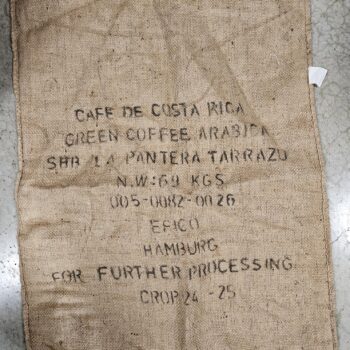 CAFE DE COSTA RICA
GREEN COFFEE ARABICA
SHB LA PANTERA TARRAZU
N.W:69 KGS
005-0082-0026
EFICO
HAMBURG
FOR FURTHER PROCESSING
CROP 24-25